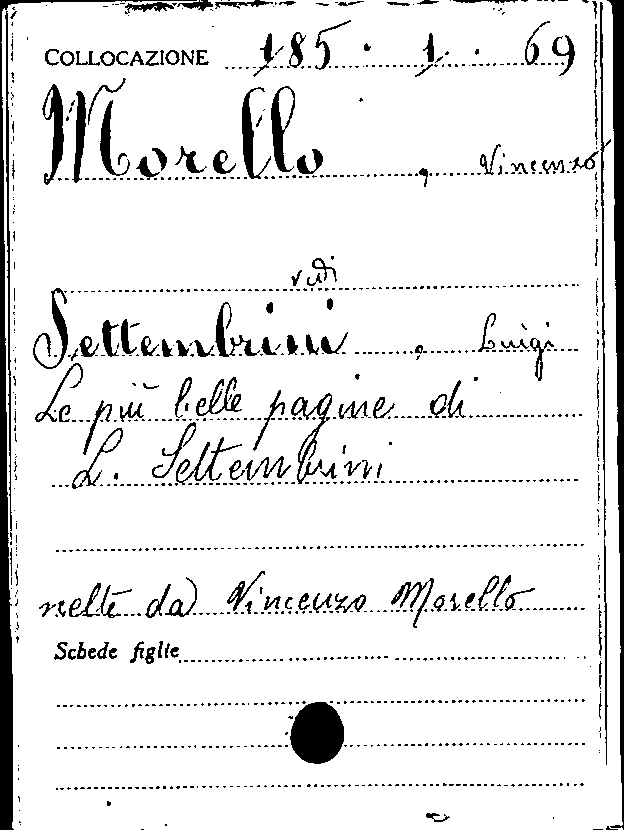 COLLOCAZIONE 185 . 1 . 69
Morello , Vincenzo
vedi
Settembrini , Luigi
Le più belle pagine di
L. Settembrini
scelte da Vincenzo Morello
Schede figlie